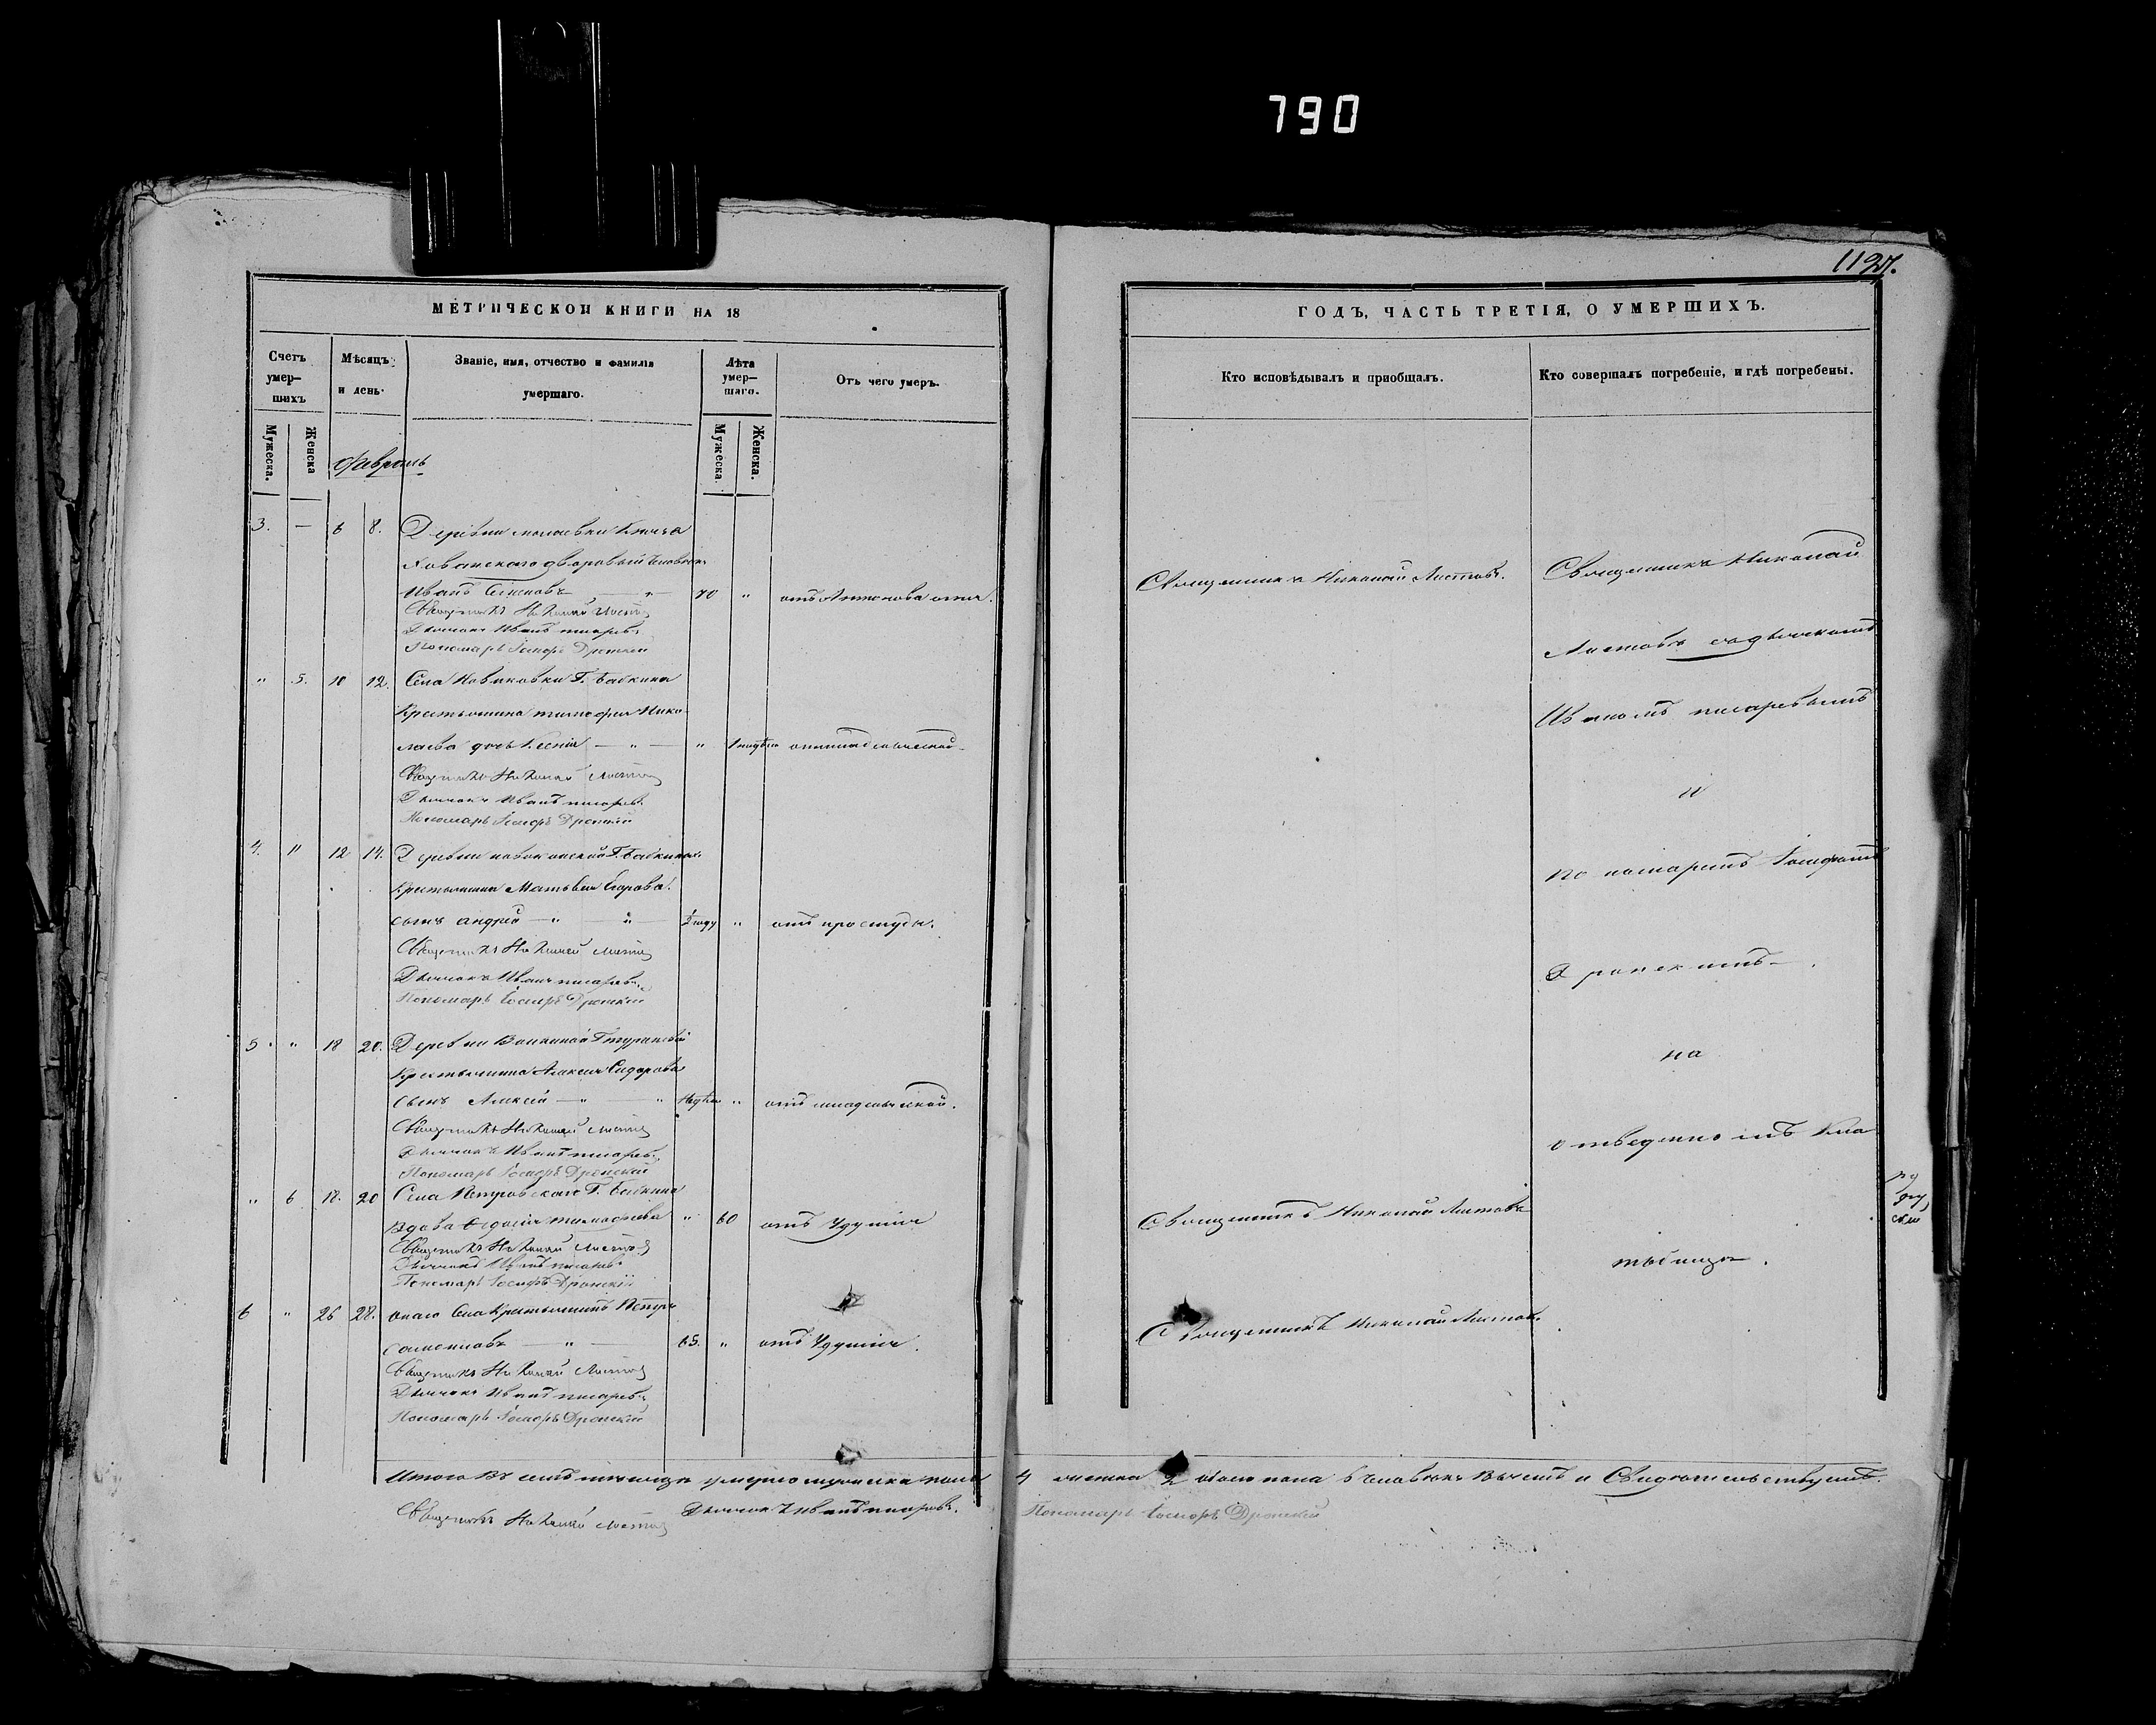 790
1127.
МЕТРИЧЕСКОЙ КНИГИ НА 18
ГОДЪ, ЧАСТЬ ТРЕТІЯ, О УМЕРШИХЪ.
Счетъ умер-шихъ
Мѣсяцъ и день.
Званіе, имя, отчество и фамилія умершаго.
Лѣта умер-шаго.
Отъ чего умеръ.
Кто исповѣдывалъ и пріобщалъ.
Кто совершалъ погребеніе, и гдѣ погребены.
Мужеска.
Женска
Мужеска.
Женска.
Февраль
3. — 6 8. Деревни Князя
Хованскаго дворовый человѣкъ
Иванъ Семеновъ — " 70 " отъ Антонова огня.
Священникъ Николай Листовъ
Дьячокъ Иванъ Писаревъ
Пономарь Іосифъ Дронскій
Священникъ Николай Листовъ.
" 5. 10 12. Села Новиковки Г. Бабкина
Крестьянина Тимофея Нико-
лаева дочь Ксенія — " — " отъ младенческой
Священникъ Николай Листовъ
Дьячокъ Иванъ Писаревъ
Пономарь Іосифъ Дронскій
4. " 12 14. Деревни Г. Бабкина
Крестьянина Матвѣя Егорова
сынъ Андрей — " — " " отъ простуды.
Священникъ Николай Листовъ
Дьячокъ Иванъ Писаревъ
Пономарь Іосифъ Дронскій
5. " 18 20. Деревни
Крестьянина Алексѣя Сидорова
сынъ Алексѣй — " — " " отъ младенческой.
Священникъ Николай Листовъ
Дьячокъ Иванъ Писаревъ
Пономарь Іосифъ Дронскій
" 6 18. 20 Села Петровскаго Г. Бабкина
Вдова Федосія Тимофеева " 60 отъ Удушія
Священникъ Николай Листовъ
Дьячокъ Иванъ Писаревъ
Пономарь Іосифъ Дронскій
Священникъ Николай Листовъ
6 " 26 28. онаго Села Крестьянинъ Петръ
Самсоновъ — " — 65. " отъ Удушія.
Священникъ Николай Листовъ
Дьячокъ Иванъ Писаревъ
Пономарь Іосифъ Дронскій
Священникъ Николай Листовъ
Священникъ Николай
Листовъ съ дьячкомъ
Иваномъ Писаревымъ
и
пономаремъ Іосифомъ
Дронскимъ
на
отведенномъ кла
дбищѣ.
Итого въ семъ мѣсяцѣ умерло мужеска пола 4 женска 2 обоего пола 6 человѣкъ въ чемъ и Свидѣтельствуемъ.
Священникъ Николай Листовъ Дьячокъ Иванъ Писаревъ. Пономарь Іосифъ Дронскій